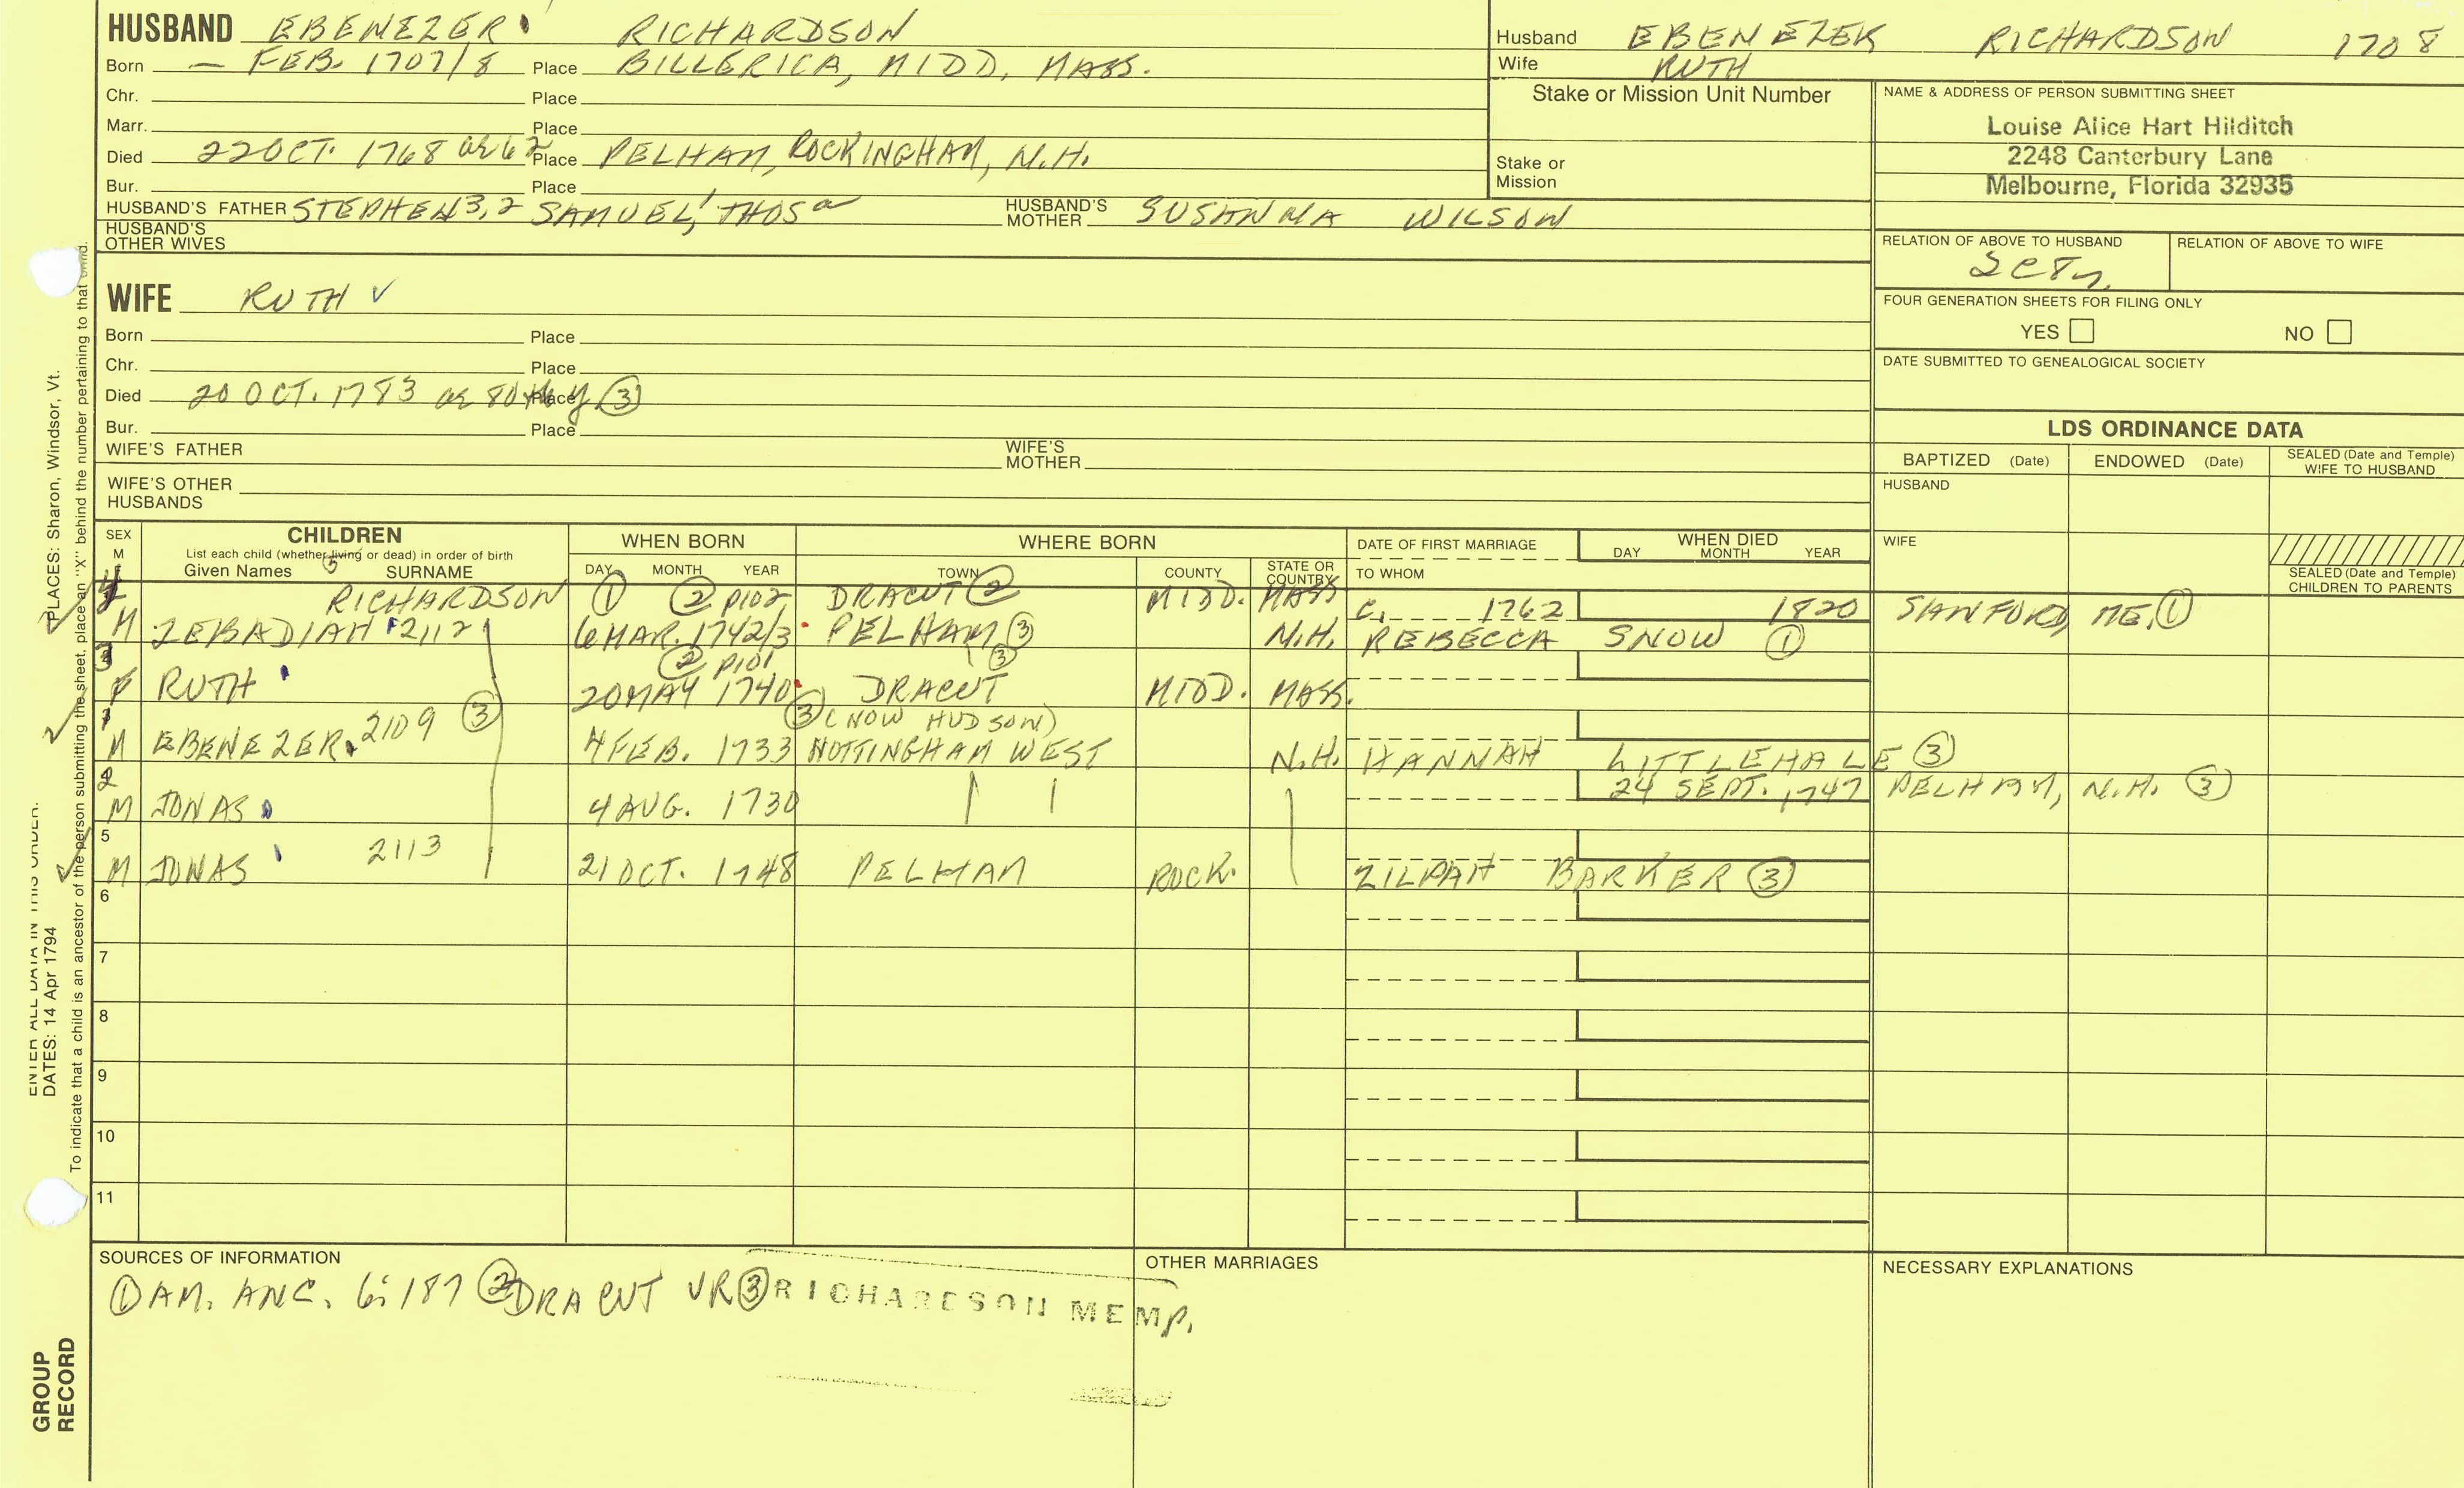 HUSBAND EBENEZER RICHARDSON
Born — FEB. 1707/8 Place BILLERICA, MIDD, MASS.
Chr. Place
Marr. Place
Died 22 OCT. 1768 ae 62 Place PELHAM, ROCKINGHAM, N.H.
Bur. Place
HUSBAND'S FATHER STEPHEN 3, 2 SAMUEL, 1 THOS a HUSBAND'S MOTHER SUSANNA WILSON
HUSBAND'S OTHER WIVES
Husband EBENEZER RICHARDSON 1708
Wife RUTH
Stake or Mission Unit Number
Stake or Mission
NAME & ADDRESS OF PERSON SUBMITTING SHEET
Louise Alice Hart Hilditch
2248 Canterbury Lane
Melbourne, Florida 32935
RELATION OF ABOVE TO HUSBAND RELATION OF ABOVE TO WIFE
FOUR GENERATION SHEETS FOR FILING ONLY
YES NO
DATE SUBMITTED TO GENEALOGICAL SOCIETY
WIFE RUTH ✓
Born Place
Chr. Place
Died 20 OCT. 1783 ae 80th y ③ Place
Bur. Place
WIFE'S FATHER WIFE'S MOTHER
WIFE'S OTHER HUSBANDS
LDS ORDINANCE DATA
BAPTIZED (Date) ENDOWED (Date) SEALED (Date and Temple) WIFE TO HUSBAND
HUSBAND
WIFE
SEALED (Date and Temple) CHILDREN TO PARENTS
SEX M CHILDREN WHEN BORN WHERE BORN DATE OF FIRST MARRIAGE WHEN DIED
List each child (whether living or dead) in order of birth DAY MONTH YEAR
Given Names SURNAME DAY MONTH YEAR TOWN COUNTY STATE OR COUNTRY TO WHOM
4 RICHARDSON ① ② p102 DRACUT ② MIDD. MASS c. 1762 1820 SANFORD, ME. ①
M ZEBADIAH 2112 6 MAR. 1742/3 PELHAM ③ N.H. REBECCA SNOW ①
3 ② p101 ③
F RUTH 20 MAY 1740 DRACUT MIDD. MASS.
1 2109 ③ ③ (NOW HUDSON)
M EBENEZER 4 FEB. 1733 NOTTINGHAM WEST N.H. HANNAH LITTLEHALE ③
2 24 SEPT. 1747 PELHAM, N.H. ③
M JONAS 4 AUG. 1730
5 2113
M JONAS 21 OCT. 1748 PELHAM ROCK. ZILPAH BARKER ③
6
7
8
9
10
11
SOURCES OF INFORMATION
① AM. ANC. 6:187 ② DRACUT VR ③ RICHARDSON MEMP.
OTHER MARRIAGES
NECESSARY EXPLANATIONS
ENTER ALL DATA IN THIS ORDER:
DATES: 14 Apr 1794
PLACES: Sharon, Windsor, Vt.
To indicate that a child is an ancestor of the person submitting the sheet, place an "X" behind the number pertaining to that child.
GROUP
RECORD